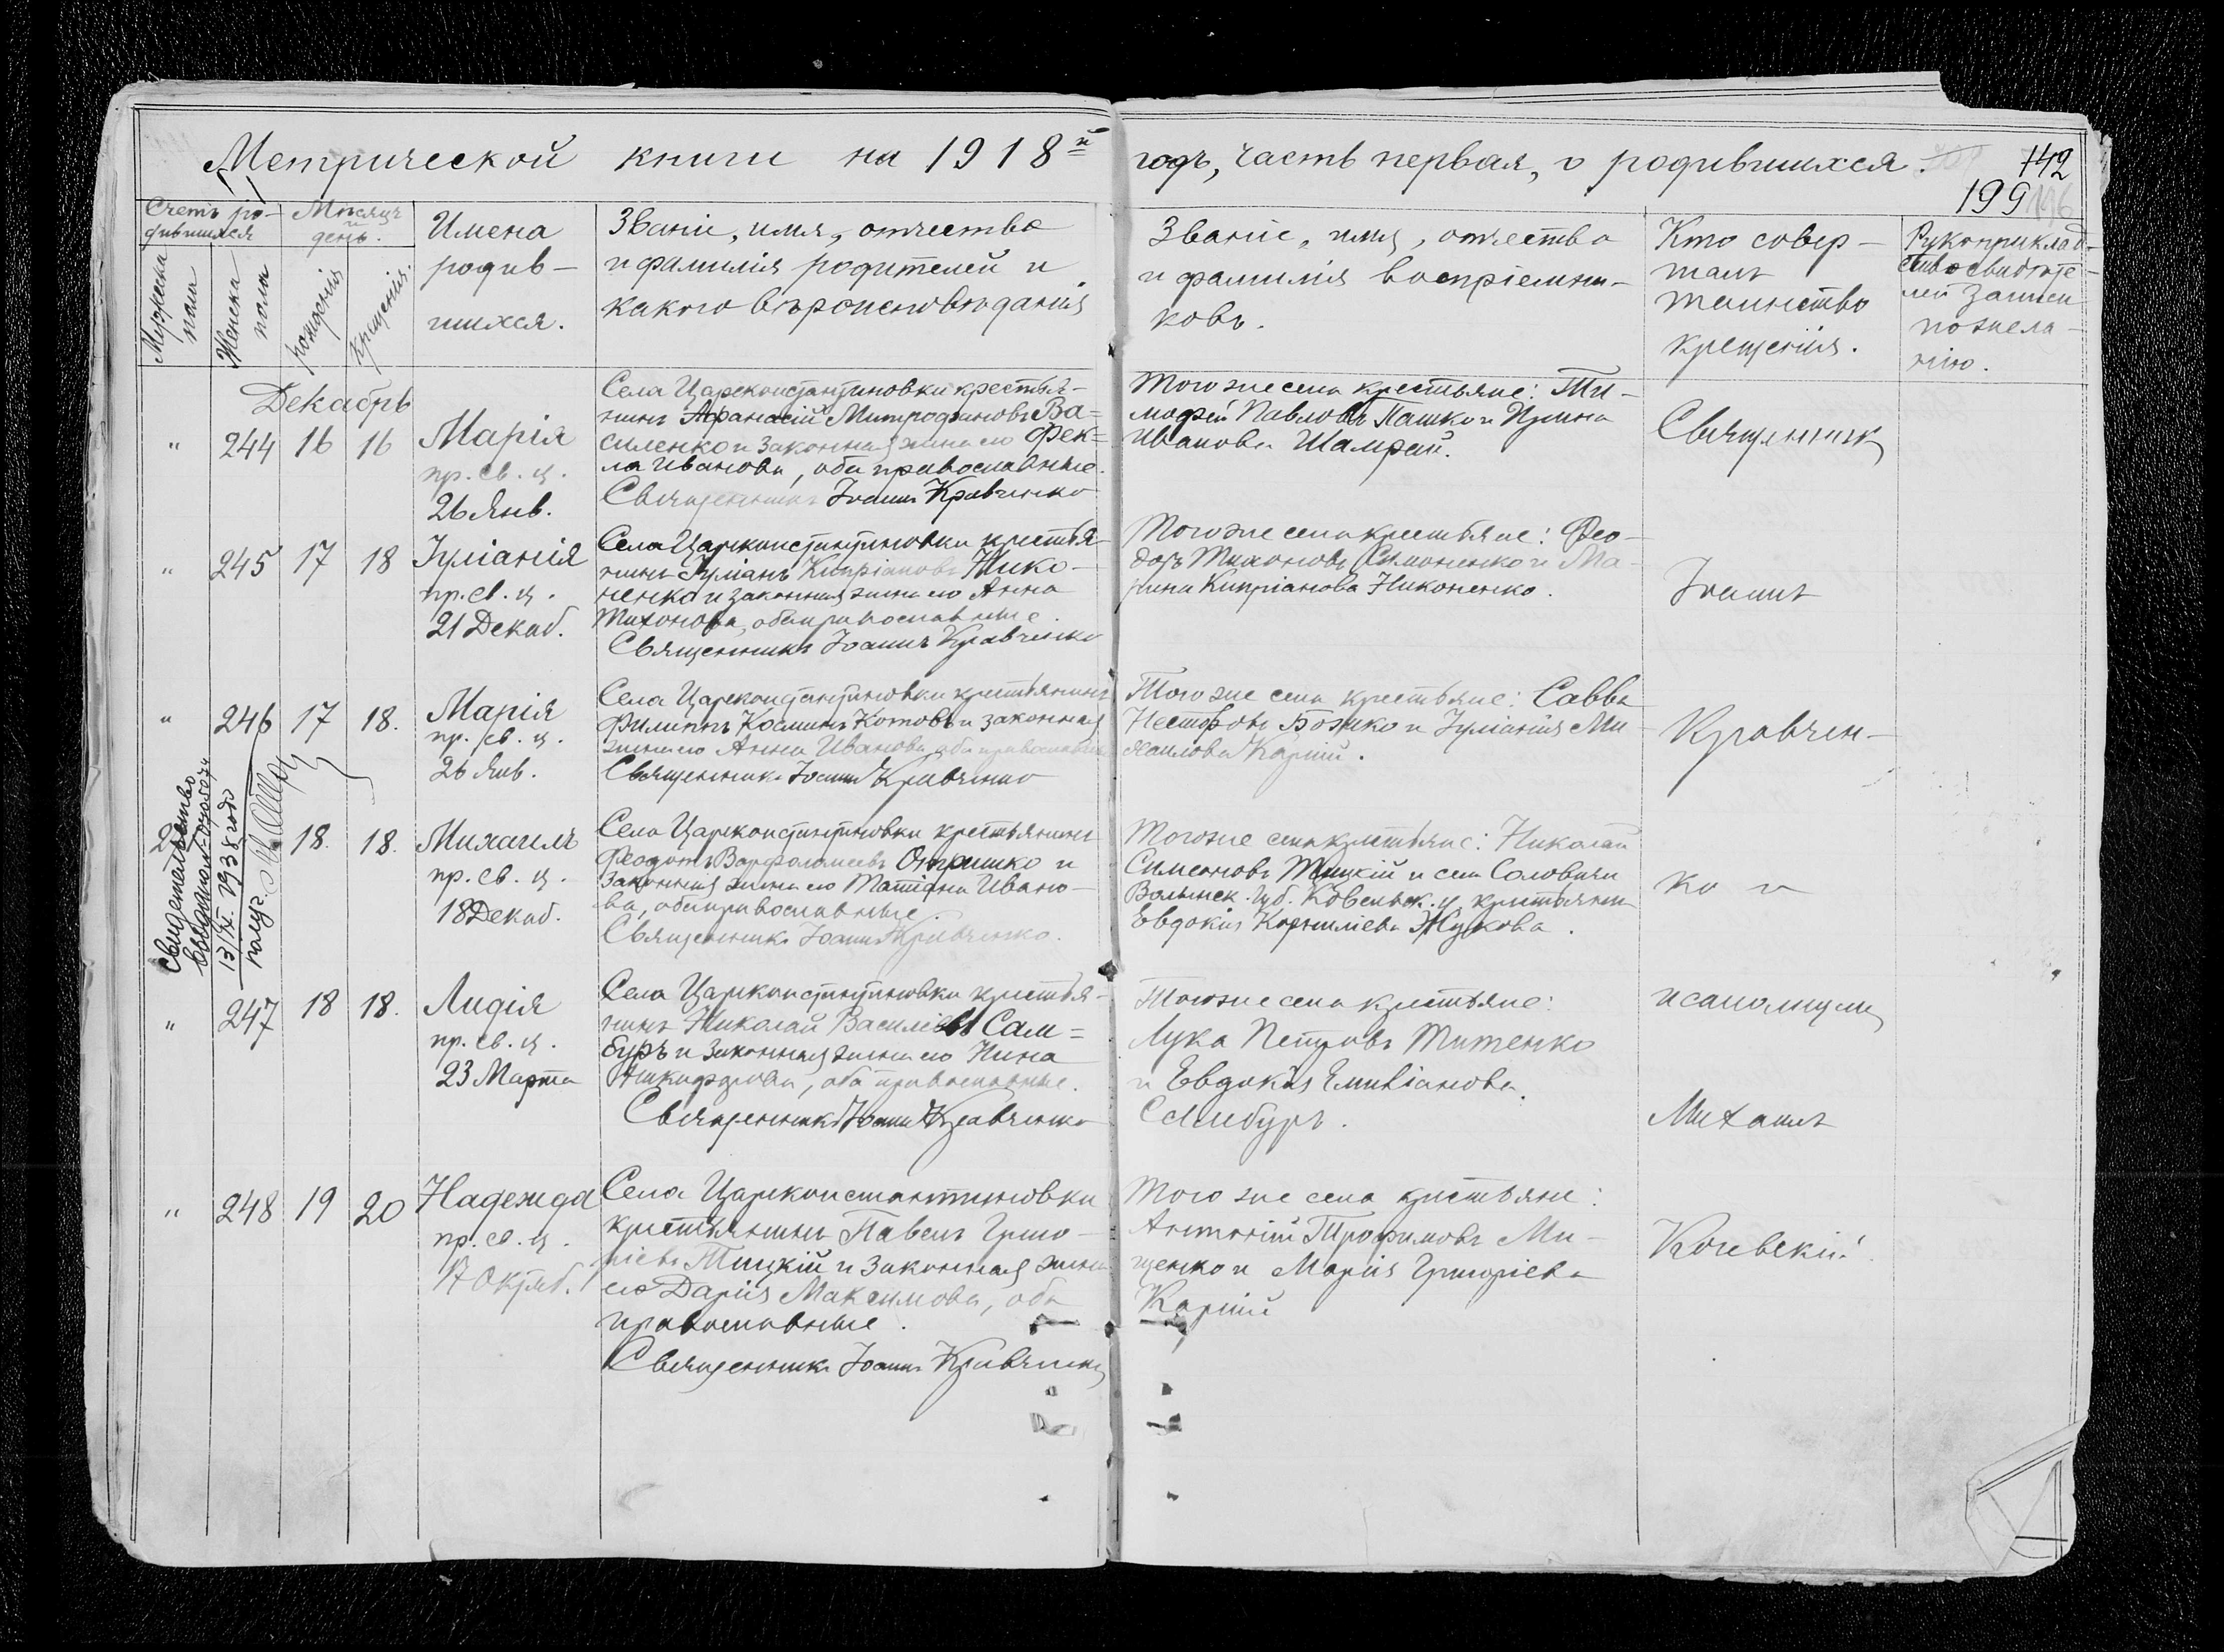 Метрической книги на 1918й годъ, часть первая, о родившихся.
142
199
196
Счетъ ро-
дившихся
Мѣсяцъ
и
день.
Мужска
пола
Женска
пола
рожденія
крещенія.
Имена
родив-
шихся.
Званіе, имя, отчество
и фамилія родителей и
какого вѣроисповѣданія
Званіе, имя, отчество
и фамилія воспріемни-
ковъ.
Кто совер-
шалъ
таинство
крещенія.
Рукоприклад-
ство свидѣте-
лей записи
по жела-
нію.
Декабрь
" 244 16 16
Марія
пр. св. ц.
26 Янв.
Села Цареконстантиновки крестья-
нинъ Афанасій Митрофановъ Ва=
силенко и законная жена его Фек=
ла Иванова, оба православные.
Священникъ Іоаннъ Кравченко
Того же села крестьяне: Ти-
мофей Павловъ Пашко и Ирина
Иванова Шамрай.
Священникъ
" 245 17 18
Іуліанія
пр. св. ц.
21 Декаб.
Села Цареконстантиновки крестья-
нинъ Іуліанъ Кипріановъ Нико-
ненко и законная жена его Анна
Тихонова, оба православные.
Священникъ Іоаннъ Кравченко
Того же села крестьяне: Фео-
доръ Тихоновъ Симоненко и Ма-
рина Кипріанова Никоненко.
Іоаннъ
" 246 17 18.
Марія
пр. св. ц.
26 Янв.
Села Цареконстантиновки крестьянинъ
Филиппъ Косминъ Котовъ и законная
жена его Анна Иванова, оба православные
Священникъ Іоаннъ Кравченко
Того же села крестьяне: Савва
Несторовъ Божко и Іуліанія Ми-
хаилова Карпій.
Кравчен-
Свидетельство
13/XI 1938 года
получ.
18. 18.
Михаилъ
пр. св. ц.
18 Декаб.
Села Цареконстантиновки крестьянинъ
Феодотъ Варфоломеевъ Онришко и
законная жена его Татіана Ивано-
ва, оба православные.
Священникъ Іоаннъ Кравченко.
Того же села крестьяне: Николай
Симеоновъ Тицкій и села Соловичи
Волынск. губ. Ковельск. у. крестьянка
Евдокія Корниліева Жукова.
ко и
" 247 18 18.
Лидія
пр. св. ц.
23 Марта
Села Цареконстантиновки крестья-
нинъ Николай Василіевъ Сам=
буръ и законная жена его Нина
Никифорова, оба православные.
Священникъ Іоаннъ Кравченко
Того же села крестьяне:
Лука Петровъ Титенко
и Евдокія Емиліанова
Самбуръ.
псаломщикъ
Михаилъ
" 248 19 20
Надежда
пр. св. ц.
17 Октяб.
Села Цареконстантиновки
крестьянинъ Павелъ Григо-
ріевъ Тицкій и законная жена
его Дарія Максимова, оба
православные.
Священникъ Іоаннъ Кравченко
Того же села крестьяне:
Антоній Трофимовъ Ми-
щенко и Марія Григоріева
Карпій
Кочевскій